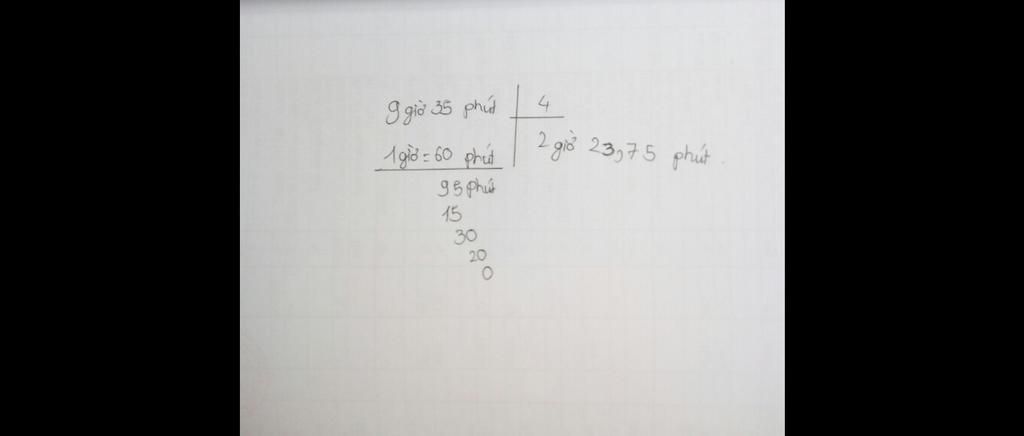 9 giờ 35 phút 4
1 giờ = 60 phút 2 giờ 23,75 phút.
95 phút
15
30
20
0